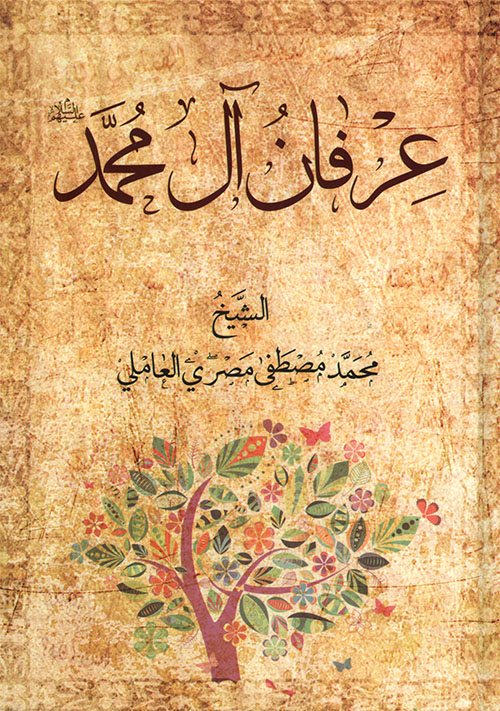 عِرْفانُ آل مُحمَّد عليهم السلام
الشَّيخُ
مُحَمَّد مُصطَفى مَصرِي العَاملي